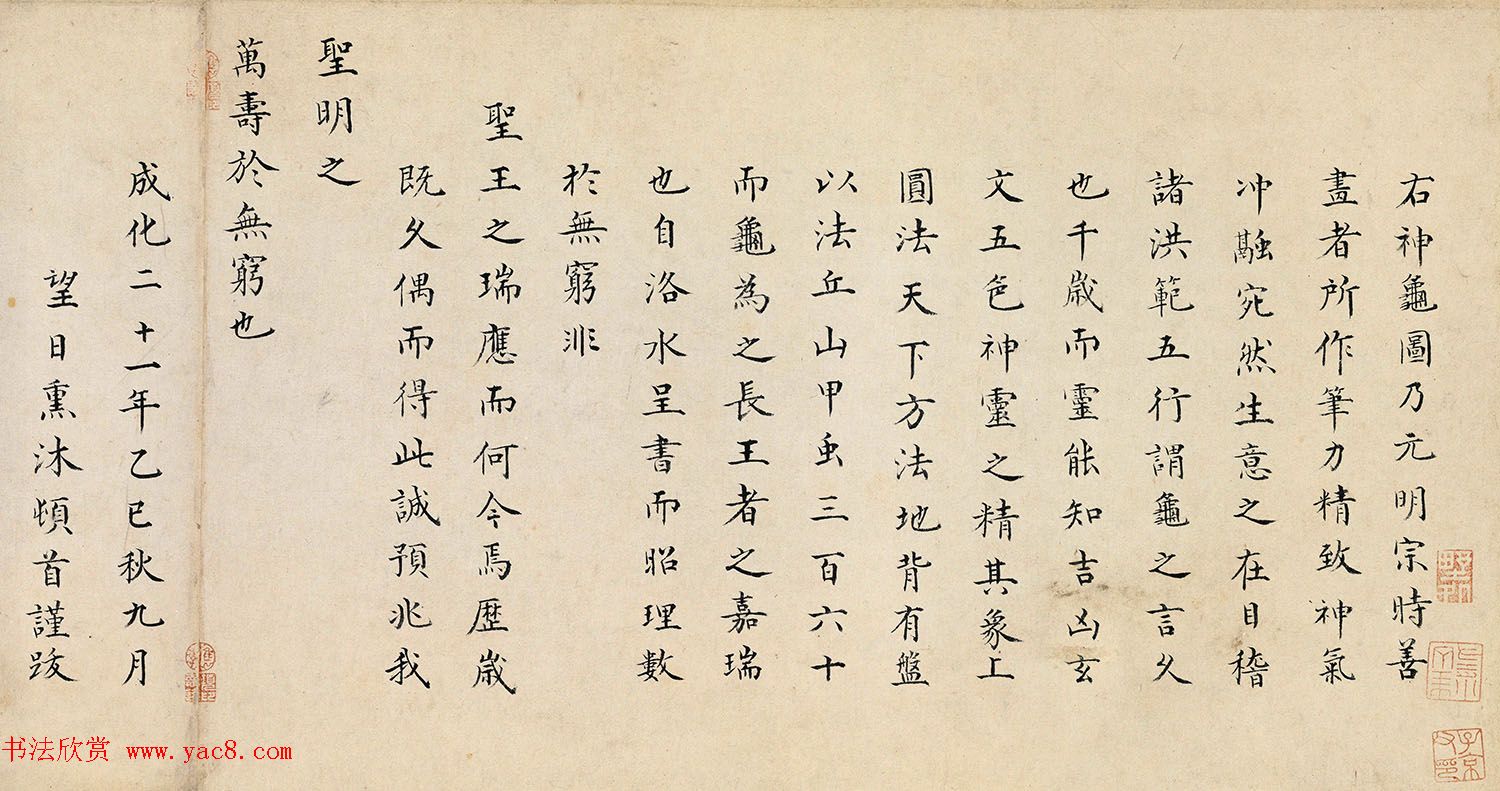 右神龜圖乃元明宗時善
畫者所作筆力精致神氣
冲融宛然生意之在目稽
諸洪範五行謂龜之言久
也千歲而靈能知吉凶玄
文五色神靈之精其象上
圓法天下方法地背有盤
以法丘山甲虫三百六十
而龜為之長王者之嘉瑞
也自洛水呈書而昭理數
於無窮非
聖王之瑞應而何今焉歷歲
既久偶而得此誠預兆我
聖明之
萬壽於無窮也
成化二十一年乙巳秋九月
望日熏沐頓首謹跋
书法欣赏 www.yac8.com